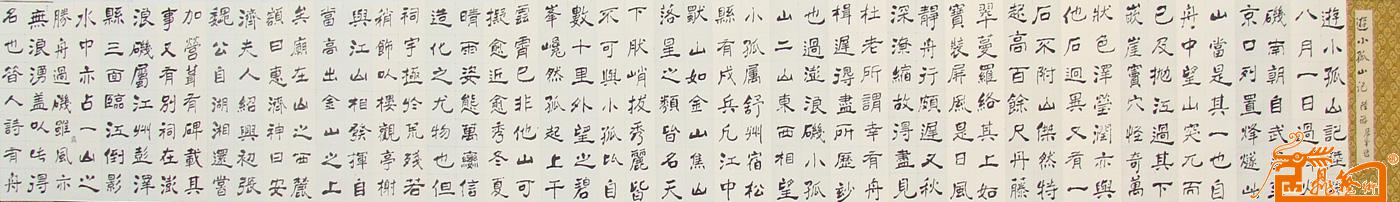 遊小孤山記
八月一日過烽火
磯南朝自武昌至
京口列置烽燧此
山當是其一也自
舟中望山突兀而
已及拋江過其下
嵌崖竇穴怪奇萬
狀色澤瑩潤亦與
他石迥異又有一
石不附山傑然特
起高百餘尺丹藤
翠蔓羅絡其上如
寶裝屏風是日風
靜舟行頗遲又秋
深潦縮故得盡見
杜老所謂幸有舟
楫遲得盡所歷妙
也過澎浪磯小孤
山二山東西相望
小孤屬舒州宿松
縣有戍兵凡江中
獸山如金山焦山
落星之類皆名天
下峭拔秀麗皆
不可與小孤比自
數十里外望之碧
峯巉然孤起上干
雲霄已非他山可
擬愈近愈秀冬夏
晴雨姿態萬變信
造化之尤物也但
祠宇極於荒殘若
稍飾以樓觀亭榭
與江山相發揮自
當高出金山之上
矣廟在山之西麓
額曰惠濟神曰安
濟夫人紹興初張
魏公自湖湘還嘗
加營葺有碑載其
事又有別祠在澎
浪磯屬江州彭澤
縣三面臨江倒影
水中亦占一山之
勝舟過磯雖風亦
無浪湧蓋以此得
名也昔人詩有舟